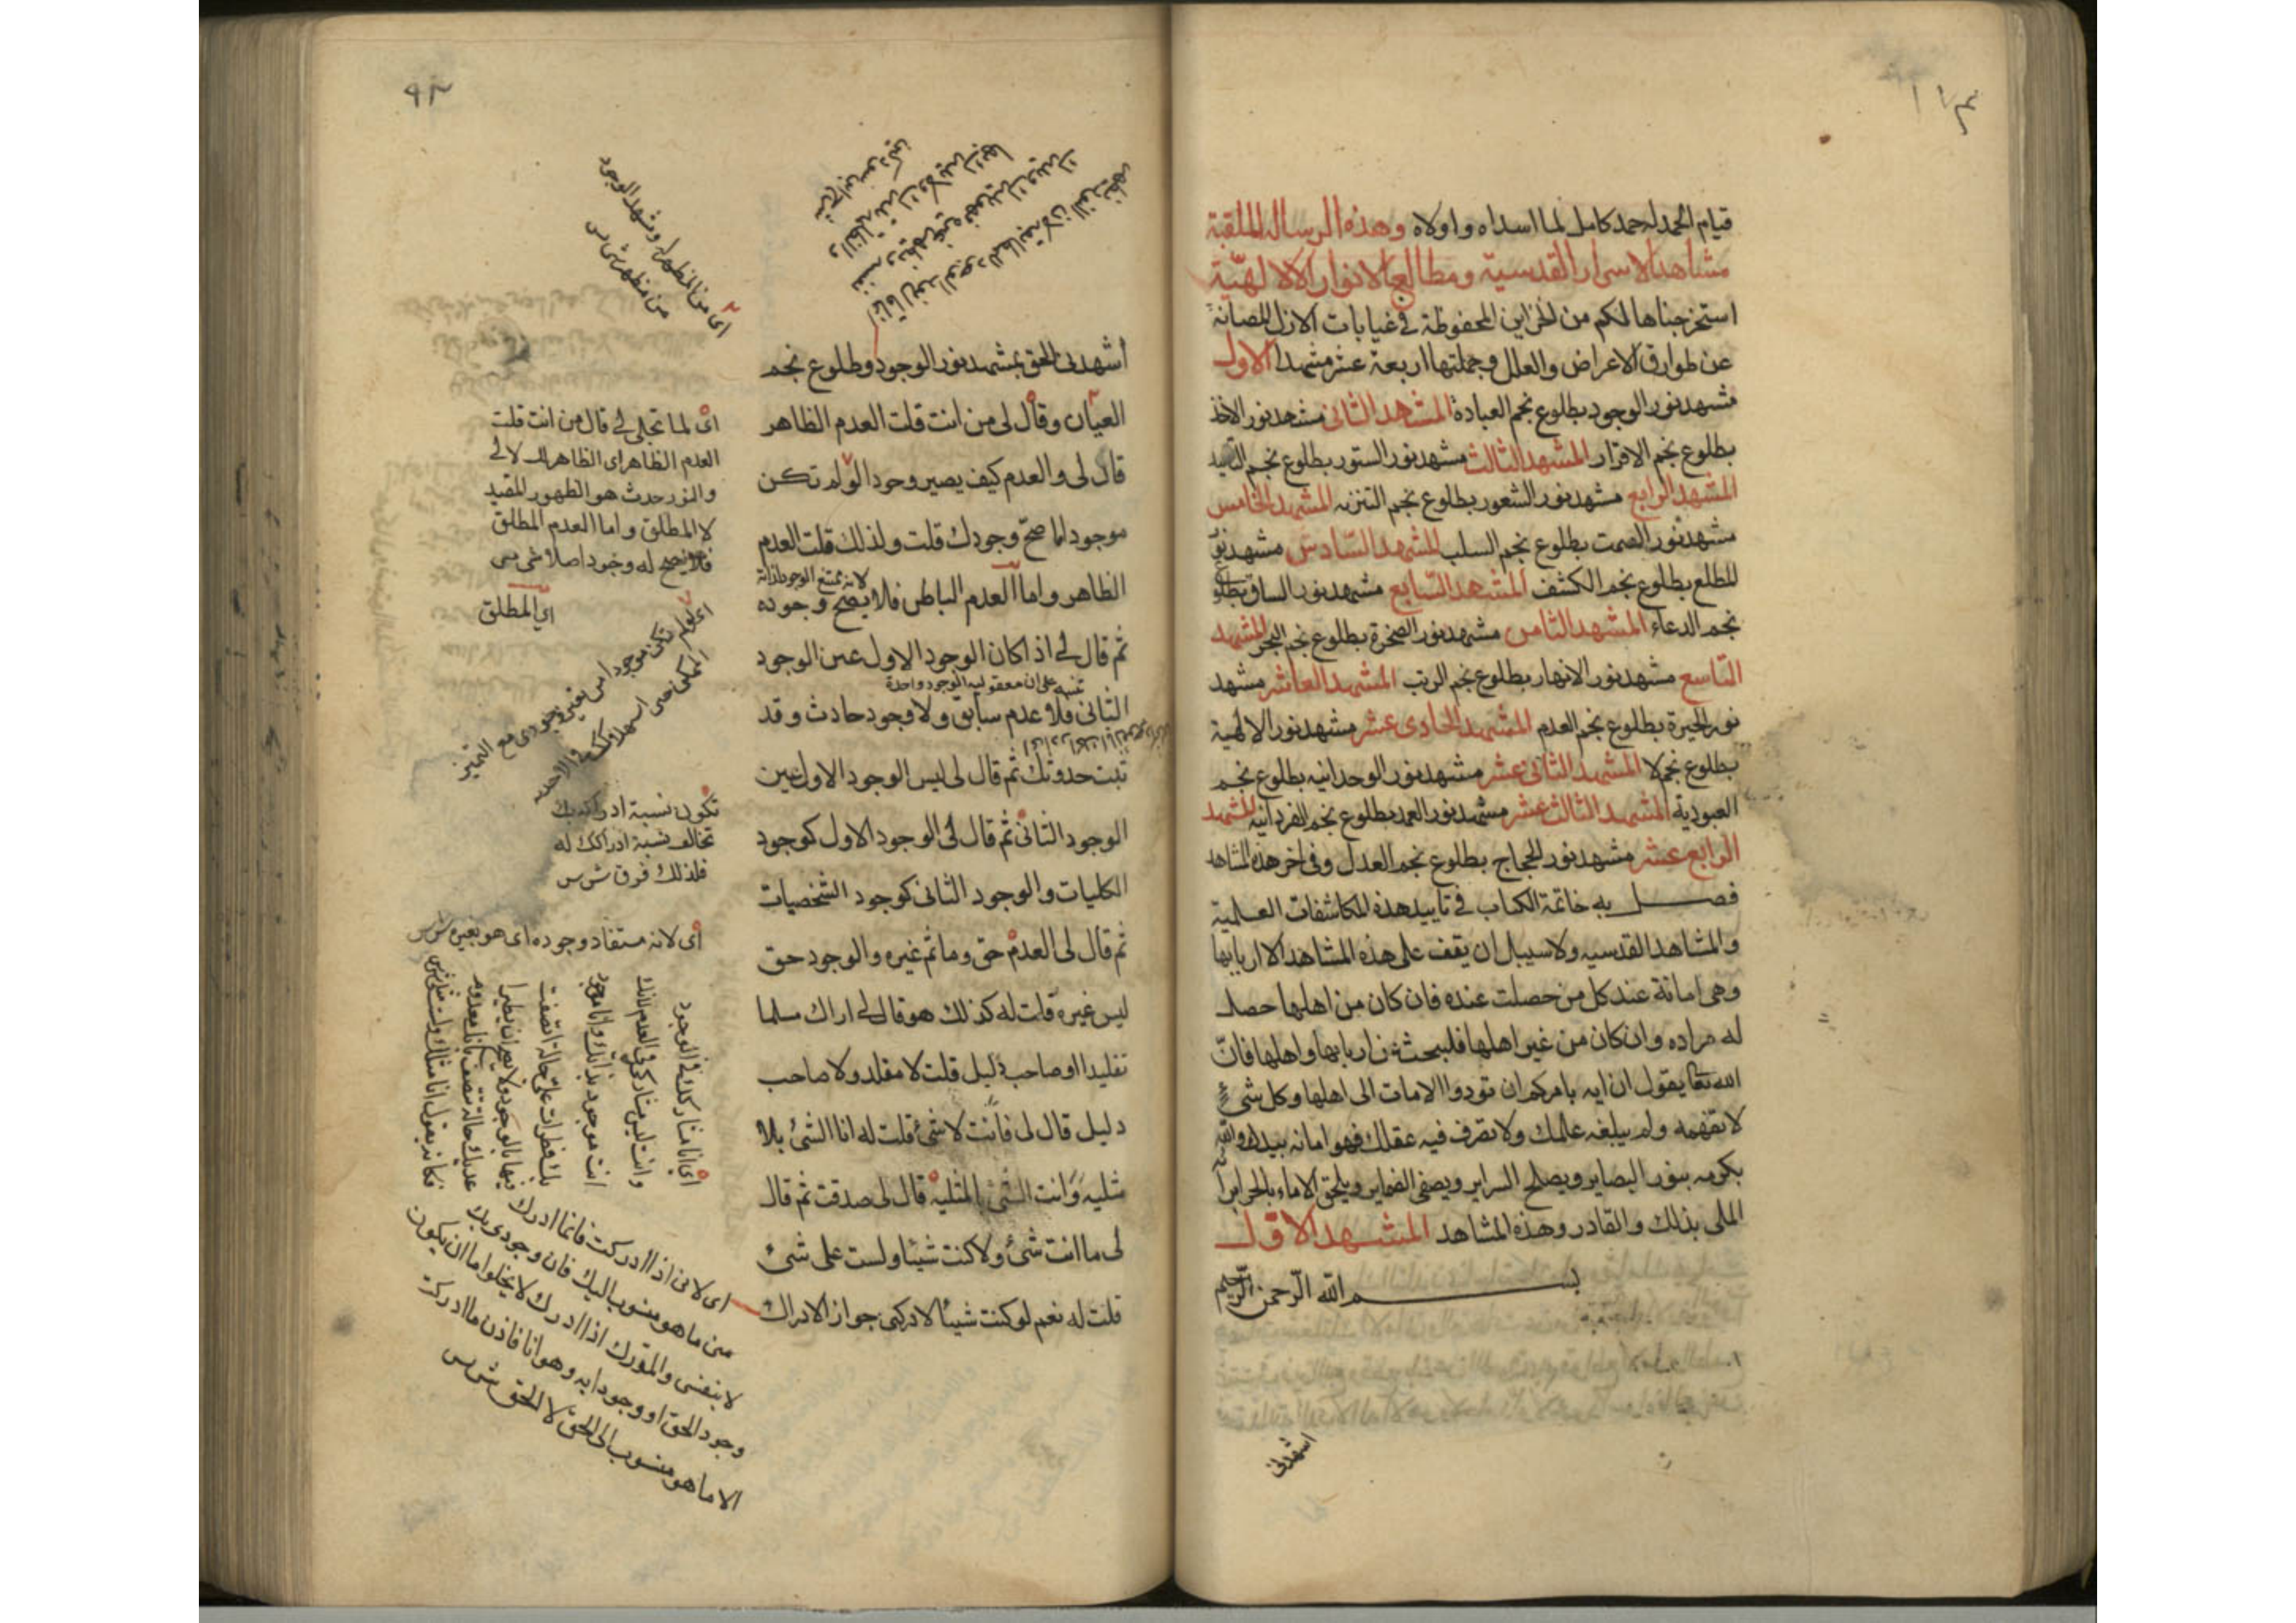 قيام الحمد له حمد كامل لما اسداه واولاه وهذه الرسالة الملقبة
مشاهد الاسرار القدسية ومطالع الانوار الالهيّة
استخرجناها لكم من الخزاين المحفوظة في غيابات الازل المصانة
عن طوارق الاعراض والعلل وجملتها اربعة عشر مشهدا الاول
مشهد نور الوجود بطلوع نجم العبادة المشهد الثاني مشهد نور الاخذ
بطلوع نجم الاقرار المشهد الثالث مشهد نور الستور بطلوع نجم
المشهد الرابع مشهد نور الشعور بطلوع نجم التنزيه المشهد الخامس
مشهد نور الصمت بطلوع نجم السلب المشهد السّادس مشهد نور
المطلع بطلوع نجم الكشف المشهد السّابع مشهد نور الساق بطلوع
نجم الدعاء المشهد الثامن مشهد نور الصخرة بطلوع نجم البحر المشهد
التاسع مشهد نور الانهار بطلوع نجم الرتب المشهد العاشر مشهد
نور الحيرة بطلوع نجم العدم المشهد الحادى عشر مشهد نور الالهية
بطلوع نجم لا المشهد الثانى عشر مشهد نور الوحدانيه بطلوع نجم
العبودية المشهد الثالث عشر مشهد نور العمد بطلوع نجم الفردانيه المشهد
الرابع عشر مشهد نور الحجاج بطلوع نجم العدل وفى اخر هذه المشاهد
فصل به خاتمة الكتاب في تاييد هذه المكاشفات العلمية
والمشاهد القدسيه ولا سبيل ان يقف على هذه المشاهد الا اربابها
وهى امانة عند كل من حصلت عنده فان كان من اهلها حصل
له مراده وان كان من غير اهلها فليبحث عن اربابها واهلها فانّ
الله تعا يقول ان الله يامركم ان تودوا الامانات الى اهلها وكل شئ
لا تفهمه ولم يبلغه علمك ولا تصرف فيه عقلك فهو امانه بيدك والله
يكرمه بنور البصاير ويصلح السراير ويصفى الضماير ويلحق الاماء بالحراير انه
الملى بذلك والقادر وهذه المشاهد المشهد الاول
بسم الله الرّحمن الرّحيم
اشهدنى
٩٢
أشهدنى الحق بمشهد نور الوجود وطلوع نجم
العيان وقال لى من انت قلت العدم الظاهر
قال لى والعدم كيف يصير وجودا لو لم تكن
موجودا لما صحّ وجودك قلت ولذلك قلت العدم
الظاهر واما العدم الباطن فلا يصح وجوده
لانه يمتنع الوجود لذاته
ثم قال لى اذا كان الوجود الاول عين الوجود
تنبيه على ان معقوليه الوجود واحدة
الثانى فلا عدم سابق ولا وجود حادث وقد
ثبت حدوثك ثم قال لى ليس الوجود الاول عين
الوجود الثانى ثم قال لى الوجود الاول كوجود
الكليات والوجود الثانى كوجود الشخصيات
ثم قال لى العدم حق وما ثم غيره والوجود حق
ليس غيره قلت له كذلك هو قال لى اراك مسلما
تقليدا او صاحب دليل قلت لا مقلد ولا صاحب
دليل قال لى فانت لا شئ قلت له انا الشئ بلا
مثليه وانت الشئ بالمثليه قال لى صدقت ثم قال
لى ما انت شئ ولا كنت شيئا ولست على شئ
قلت له نعم لو كنت شيئا لادركنى جواز الادراك
اى من المظهرا وشهد الوجود
من مظهر شى س
اى لما تجلى لى قال من انت قلت
العدم الظاهر اى الظاهر لك لا لى
والنور حدث هو الظهور المقيد
لا المطلق واما العدم المطلق
فلا يصح له وجود اصلا
اى المطلق
اى لو لم تكن موجودا
تكون نسبة ادراكه بك
تخالف نسبة ادراكك له
فلذلك فرق ش س
اى لانه مستفاد وجوده اى هو بغيره ش س
اى انا مشاركك فى الوجود
وانت ليس مشاركى فى العدم لانك
انت موجود بذاتك وانا موجود
بك فطرات على حالة اتصفت
فيها بالوجود ولا يصح ان يطرا
عليك حالة تتصف بانك معدوم
فكانه يقول انا مثلك ولست مثلى ش س
اى لانى اذا ادركت فانما ادرك
من ما هو منسوب اليك فان وجودى بك
لا بنفسى والمدرك اذا ادرك لا يخلوا اما ان يكون
وجود الحق او وجودا به وهو انا فاذن ما ادركت
الا ما هو منسوب الى الحق لا الحق ش س